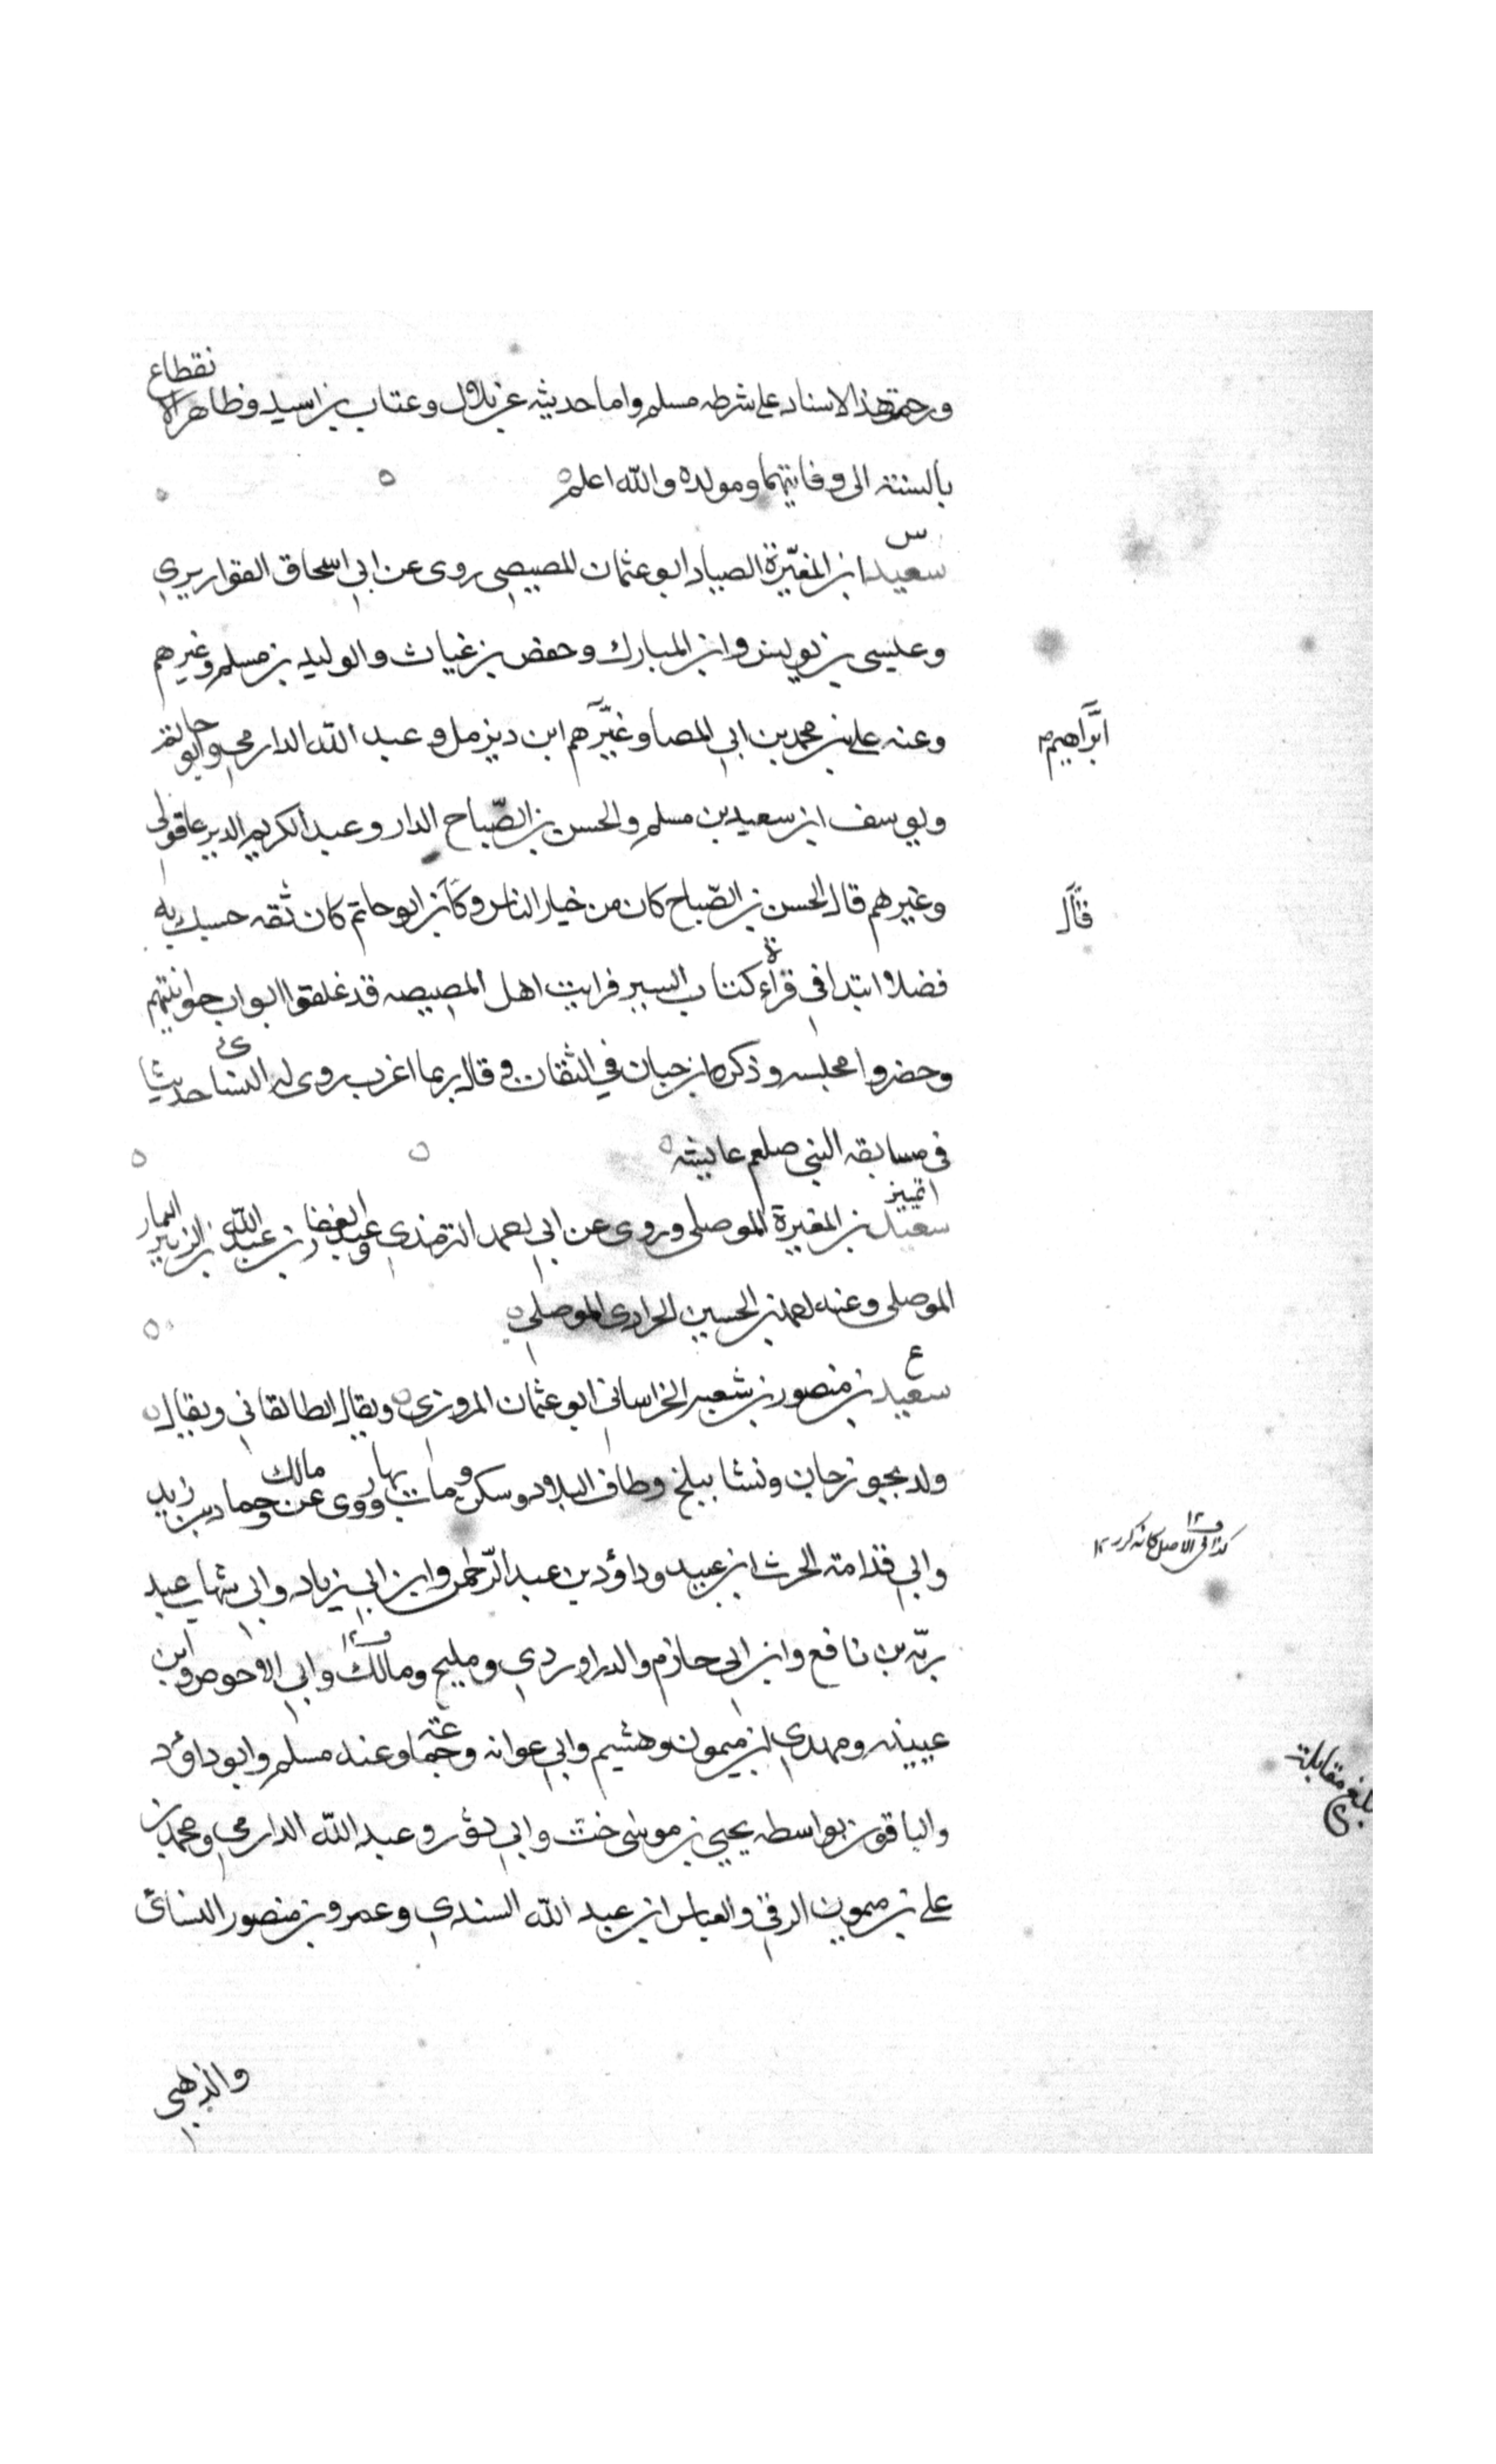 ورجمة هذا الاسناد على شرطه مسلم واما حديثه عن بلال وعتاب بن اسيد فظاهر الانقطاع
بالسنة الى وفاتيهما ومولده والله اعلم
س
سعيد ابن المغيرة الصياد ابو عثمان المصيصي روى عن ابي اسحاق الفزاريري
وعيسى بن يونس وابن المبارك وحفص بن غياث والوليد بن مسلم وغيرهم
وعنه علي بن محمد بن ابي المصا وغيرهم ابن ديزمل وعبد الله الدارمي وابو حاتم
ابراهيم
ويوسف ابن سعيد بن مسلم والحسن بن الصباح الدار وعبد الكريم الديرعاقولي
وغيرهم قال الحسن بن الصباح كان من خيار الناس وكان ابو حاتم كان ثقه حسبك به
قال
فضلا ابتدا في قراءة كتاب السير فرايت اهل المصيصه قد غلقوا ابواب حوانيتهم
وحضروا مجلسه وذكره ابن حبان في الثقات و قال ربما اغرب روى له النسائي حديثا
في مسابقه النبي صلعم عايشه
تمييز
سعيد بن المغيرة الموصلي وروى عن ابي احمد الترمذي وعبد الغفار بن عبد الله بن الزبير
الموصلي وعنه احمد بن الحسين الحرادي الموصلي
ع
سعيد بن منصور بن شعبه الخراساني ابو عثمان المروزي ويقال الطالقاني ويقال
ولد بجوزجان ونشا ببلخ وطاف البلاد وسكن ومات بها روى عن مالك وحماد بن زيد
وابي قدامة الحرث ابن عبيد وداؤد بن عبد الرحمن وابن ابي زياد وابي شهاب عبد
كذا في الاصل كانه كرر ١٢
ربه بن نافع وابن ابي حازم والدراوردي ومليح ومالك وابي الاحوص وابن
عيينه ومهدي ابن ميمون وهشيم وابي عوانه وجماعة وعنه مسلم وابو داؤد
بلغ مقابلة
والباقون بواسطه يحيى بن موسى خت وابي ثور وعبد الله الدارمي ومحمد بن
علي بن ميمون الرقي والعباس ابن عبد الله السندي وعمرو بن منصور النسائى
والذهبي